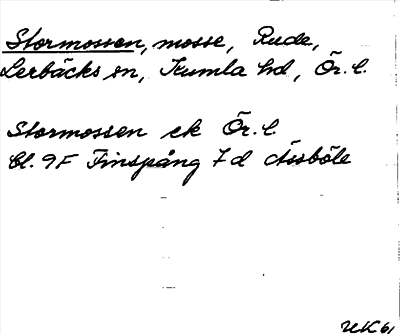 Stormossen, mosse, Rude,
Lerbäcks sn, Kumla hd, Ör. l.
Stormossen ek Ör. l.
Bl. 9F Finspång 7d Åsböle
UK 61